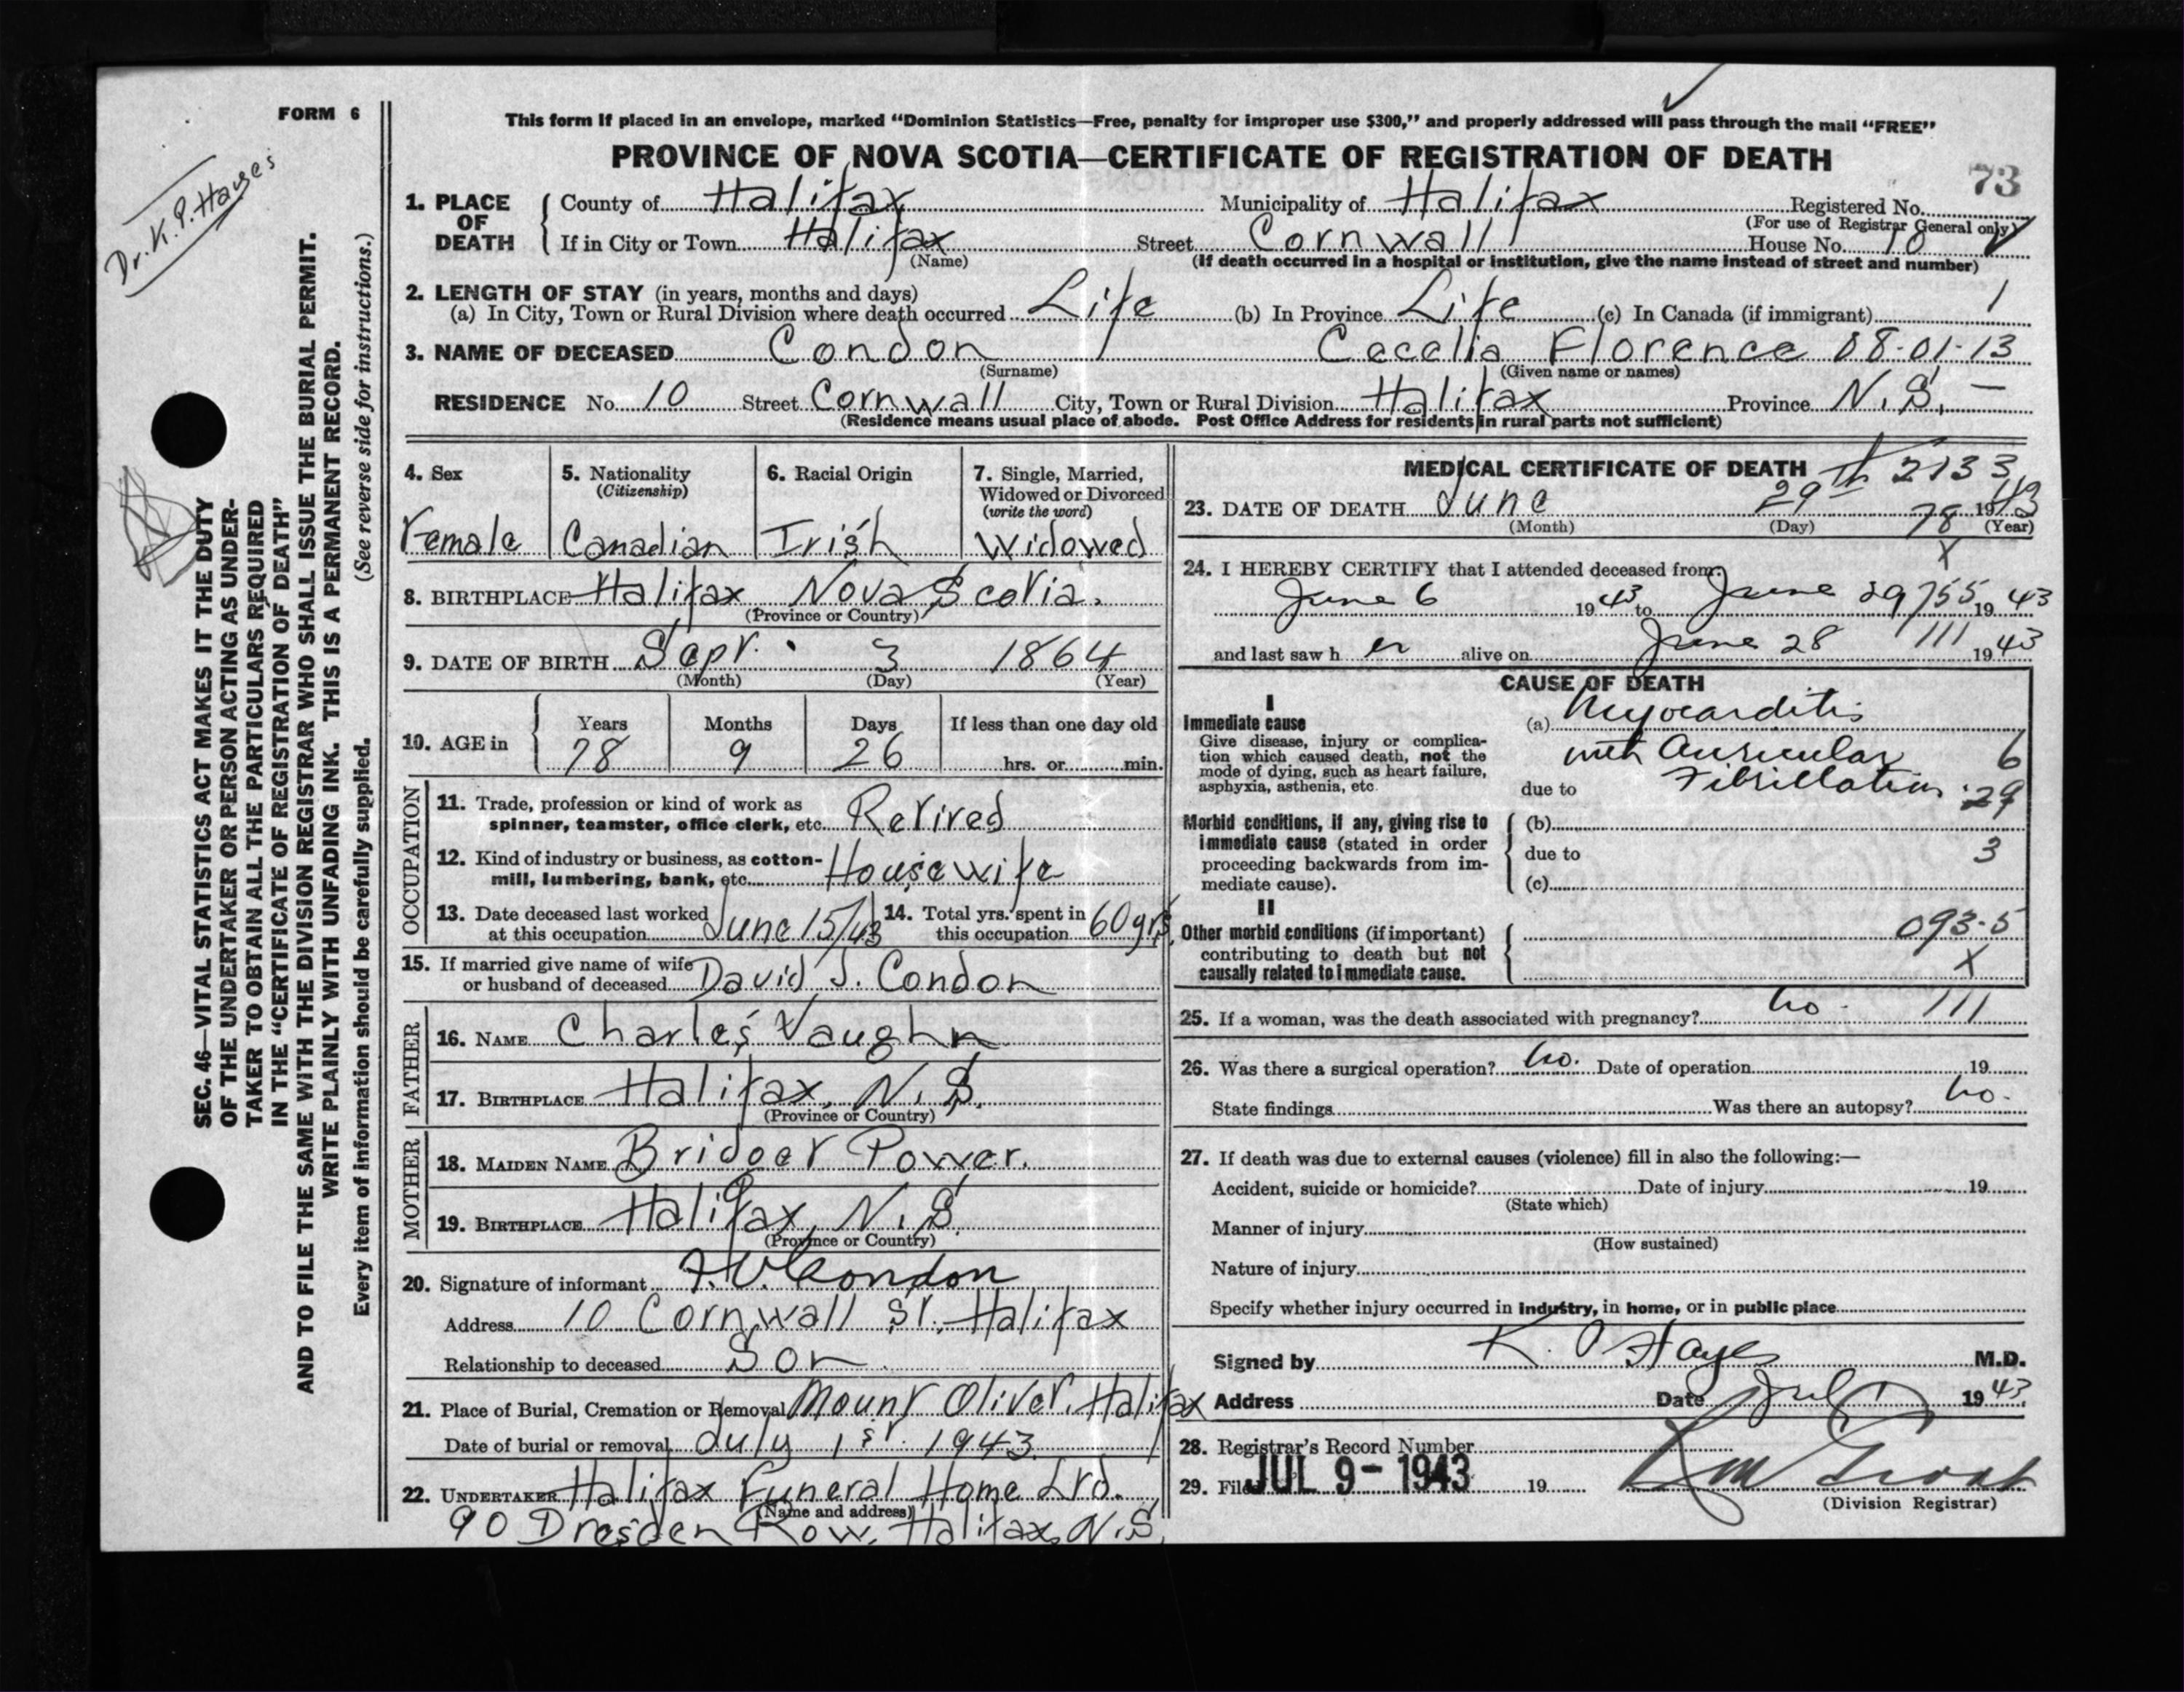 FORM 6
Dr. K. P. Hayes
This form if placed in an envelope, marked “Dominion Statistics—Free, penalty for improper use $300,” and properly addressed will pass through the mail “FREE”
PROVINCE OF NOVA SCOTIA—CERTIFICATE OF REGISTRATION OF DEATH
73
1. PLACE OF DEATH County of Halifax Municipality of Halifax Registered No.
(For use of Registrar General only)
If in City or Town Halifax Street Cornwall House No. 10
(Name) (If death occurred in a hospital or institution, give the name instead of street and number)
2. LENGTH OF STAY (in years, months and days)
(a) In City, Town or Rural Division where death occurred Life (b) In Province Life (c) In Canada (if immigrant) 1
3. NAME OF DECEASED Condon Cecelia Florence 08-01-13
(Surname) (Given name or names)
RESIDENCE No. 10 Street Cornwall City, Town or Rural Division Halifax Province N.S. —
(Residence means usual place of abode. Post Office Address for residents in rural parts not sufficient)
4. Sex
Female
5. Nationality
(Citizenship)
Canadian
6. Racial Origin
Irish
7. Single, Married,
Widowed or Divorced
(write the word)
Widowed
8. BIRTHPLACE Halifax Nova Scotia.
(Province or Country)
9. DATE OF BIRTH Sept. 3 1864
(Month) (Day) (Year)
10. AGE in Years Months Days If less than one day old
78 9 26 hrs. or min.
OCCUPATION
11. Trade, profession or kind of work as
spinner, teamster, office clerk, etc. Retired
12. Kind of industry or business, as cotton-
mill, lumbering, bank, etc. Housewife
13. Date deceased last worked
at this occupation June 15/43
14. Total yrs. spent in
this occupation 60 yrs.
15. If married give name of wife
or husband of deceased David J. Condon
FATHER
16. NAME Charles Vaughn
17. BIRTHPLACE Halifax, N.S.
(Province or Country)
MOTHER
18. MAIDEN NAME Bridget Power.
19. BIRTHPLACE Halifax, N.S.
(Province or Country)
20. Signature of informant F. V. Condon
Address 10 Cornwall St., Halifax
Relationship to deceased Son
21. Place of Burial, Cremation or Removal Mount Olivet, Halifax
Date of burial or removal July 1st. 1943
22. UNDERTAKER Halifax Funeral Home Ltd.
(Name and address)
90 Dresden Row, Halifax, N.S.
MEDICAL CERTIFICATE OF DEATH 2133
23. DATE OF DEATH June 29th 1943
(Month) (Day) 78 (Year)
X
24. I HEREBY CERTIFY that I attended deceased from:
June 6 1943 to June 29 755 1943
and last saw h er alive on June 28 111 1943
CAUSE OF DEATH
I
Immediate cause
Give disease, injury or complica-
tion which caused death, not the
mode of dying, such as heart failure,
asphyxia, asthenia, etc.
(a) Myocarditis
with Auricular 6
due to Fibrillation 29
Morbid conditions, if any, giving rise to
immediate cause (stated in order
proceeding backwards from im-
mediate cause).
(b)
due to 3
(c)
II
Other morbid conditions (if important)
contributing to death but not
causally related to immediate cause.
093-5
X
25. If a woman, was the death associated with pregnancy? no 111
26. Was there a surgical operation? no. Date of operation 19
State findings Was there an autopsy? no.
27. If death was due to external causes (violence) fill in also the following:—
Accident, suicide or homicide? Date of injury 19
(State which)
Manner of injury
(How sustained)
Nature of injury
Specify whether injury occurred in industry, in home, or in public place
Signed by K. P. Hayes M.D.
Address Date Jul 1 1943
28. Registrar's Record Number
29. Filed JUL 9 - 1943 19
(Division Registrar)
SEC. 46—VITAL STATISTICS ACT MAKES IT THE DUTY
OF THE UNDERTAKER OR PERSON ACTING AS UNDER-
TAKER TO OBTAIN ALL THE PARTICULARS REQUIRED
IN THE “CERTIFICATE OF REGISTRATION OF DEATH”
AND TO FILE THE SAME WITH THE DIVISION REGISTRAR WHO SHALL ISSUE THE BURIAL PERMIT.
WRITE PLAINLY WITH UNFADING INK. THIS IS A PERMANENT RECORD.
Every item of information should be carefully supplied. (See reverse side for instructions.)